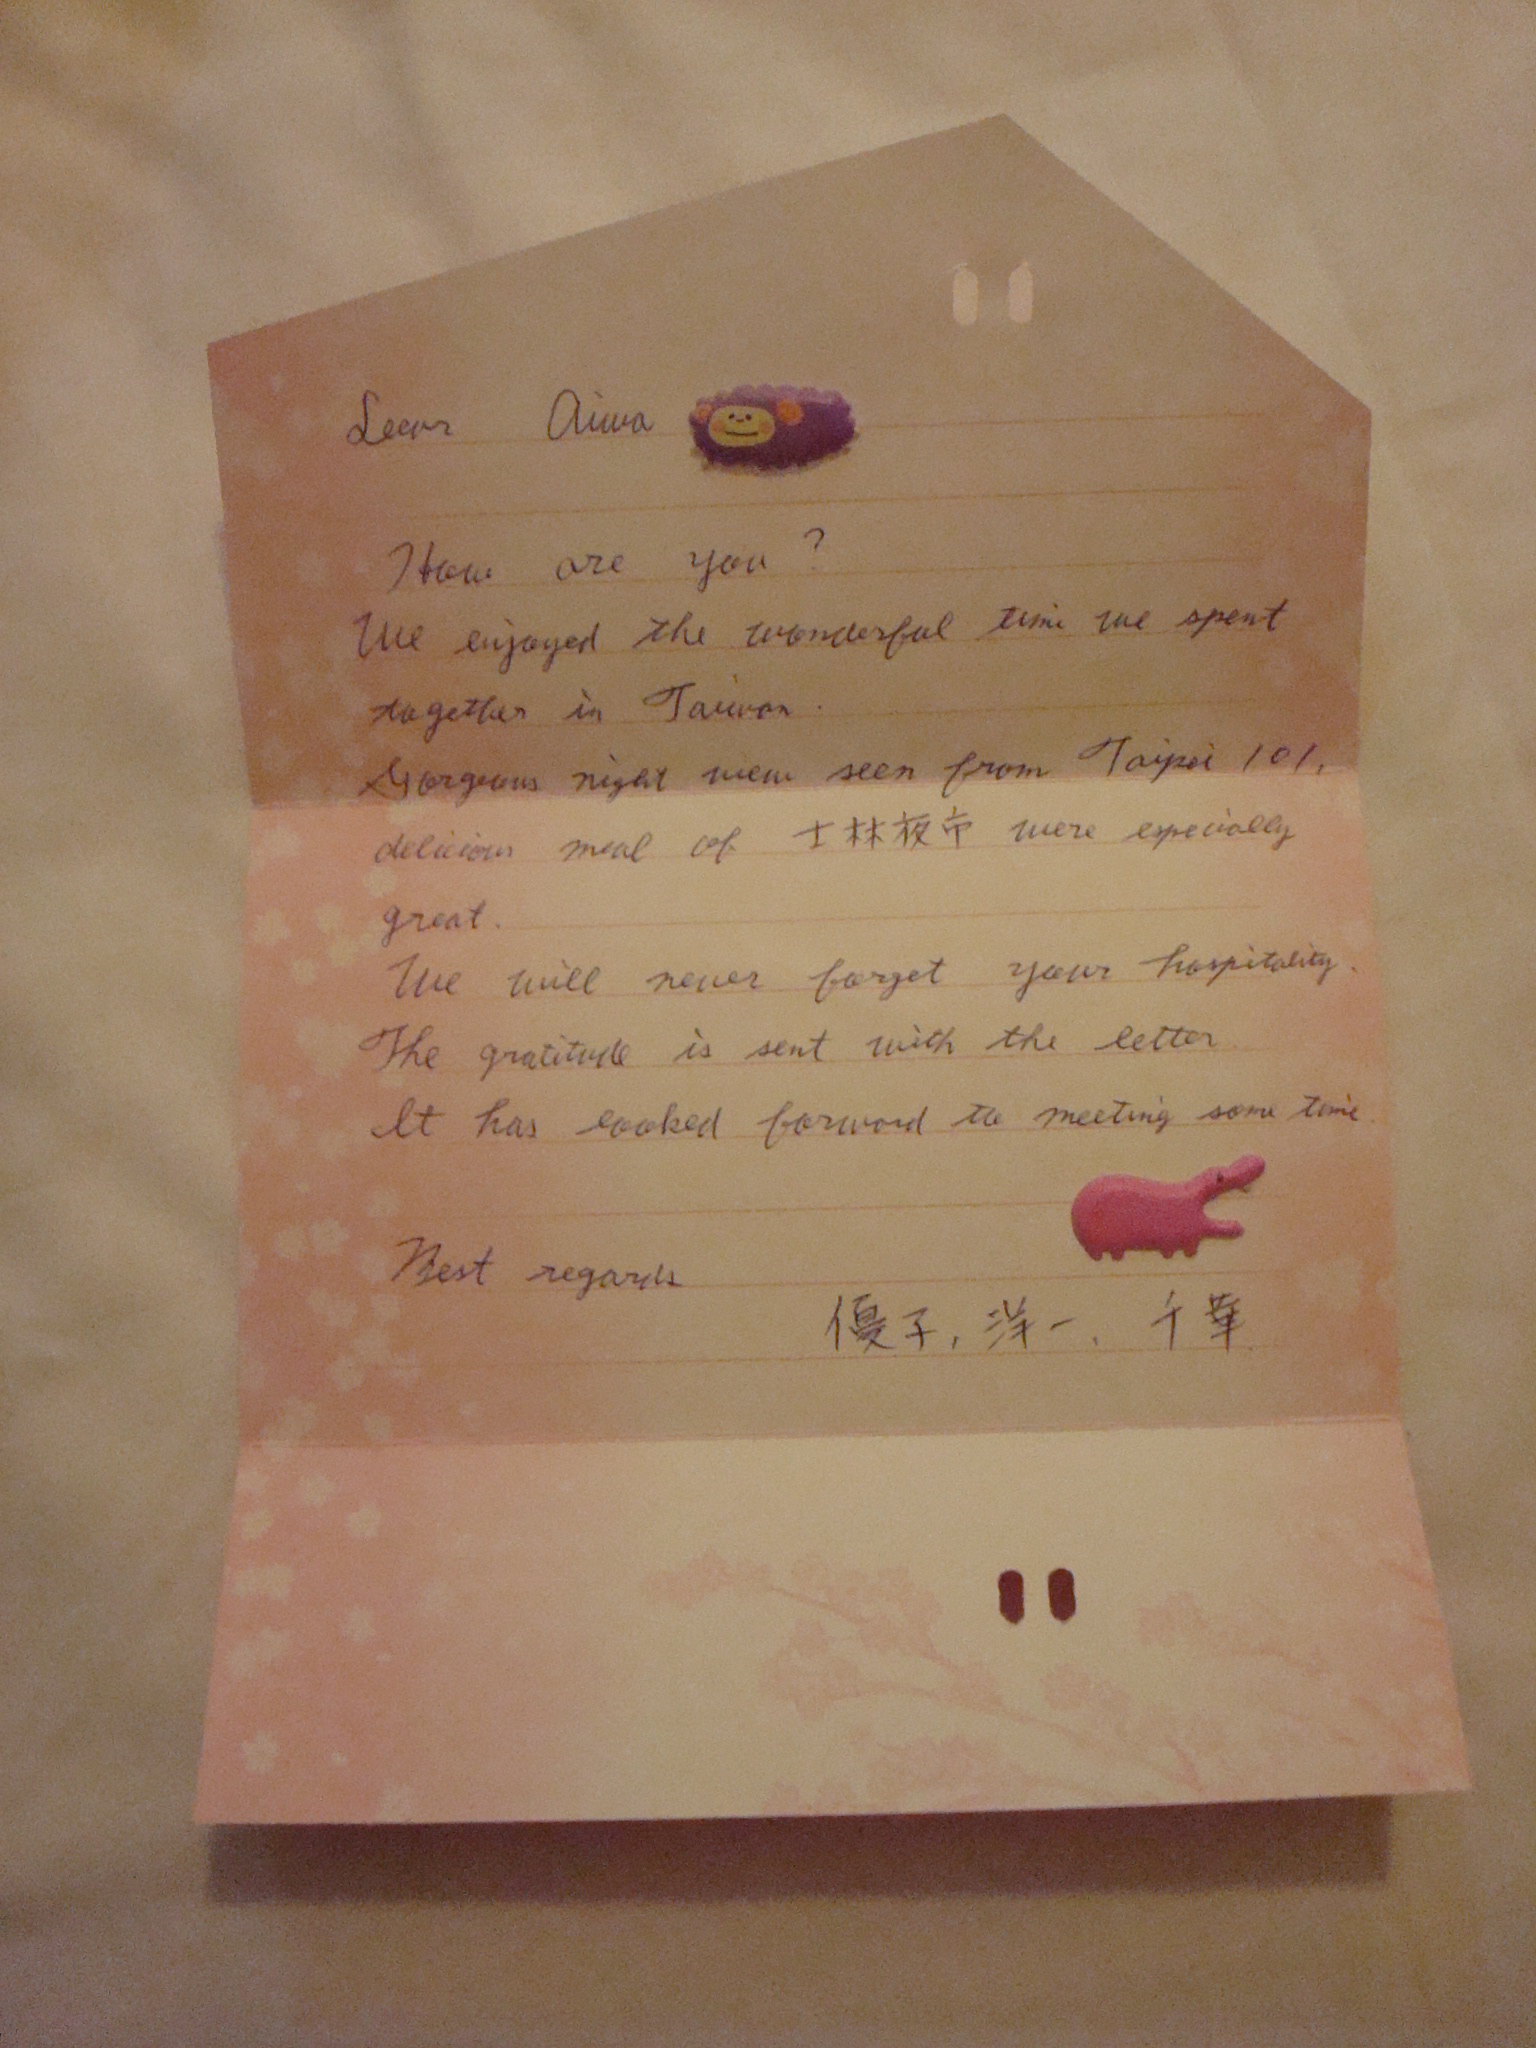 Dear Aiwa
How are you?
We enjoyed the wonderful time we spent
together in Taiwan.
Gorgeous night view seen from Taipei 101,
delicious meal of 士林夜市 were especially
great.
We will never forget your hospitality.
The gratitude is sent with the letter.
It has looked forward to meeting some time.
Best regards
優子, 洋一、千華